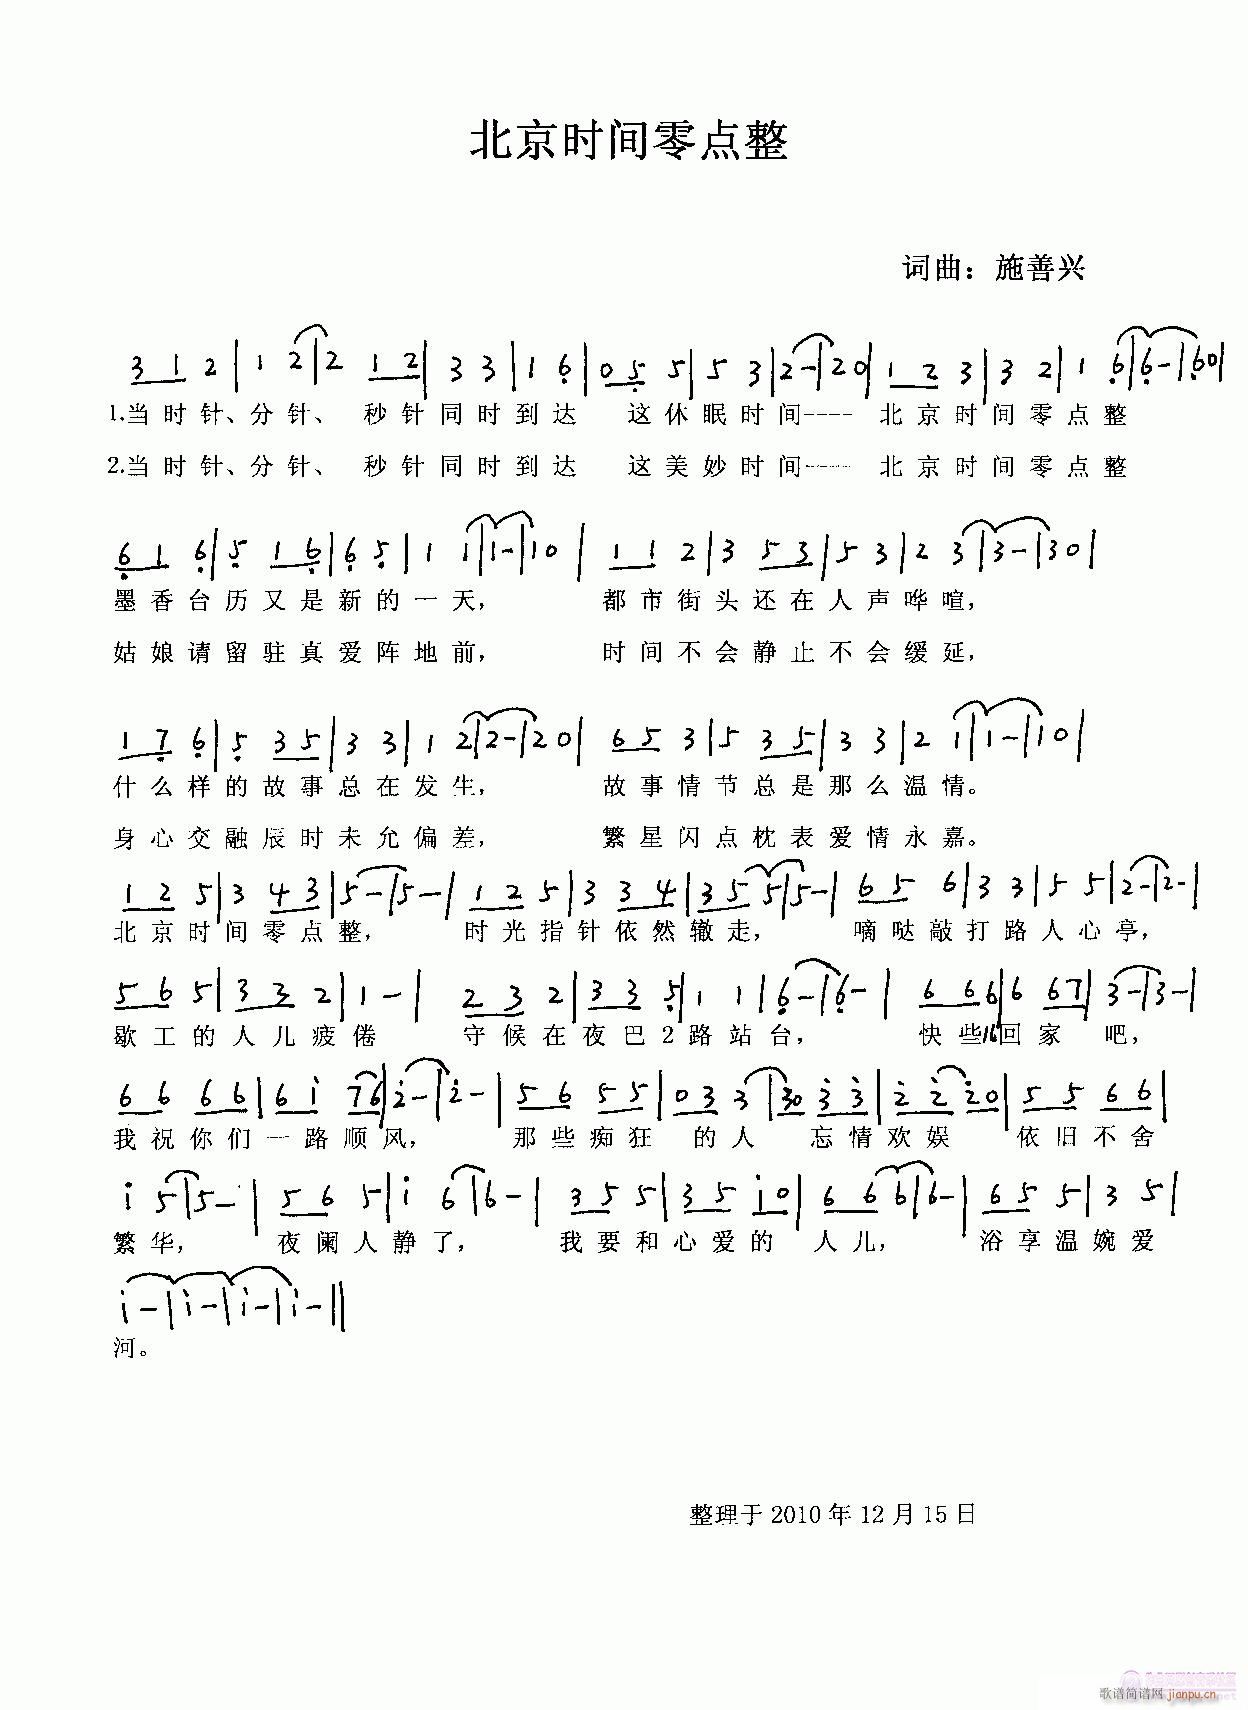 北京时间零点整
词曲：施善兴
3 1 2 | 1 2 | 2 1 2 | 3 3 | 1 6 | 0 5 5 | 5 3 | 2 - | 2 0 | 1 2 3 | 3 2 | 1 6 | 6 - | 6 0 |
1.当时针、分针、 秒针同时到达 这休眠时间---- 北京时间零点整
2.当时针、分针、 秒针同时到达 这美妙时间---- 北京时间零点整
6 1 6 | 5 1 6 | 6 5 | 1 1 | 1 - | 1 0 | 1 1 2 | 3 5 3 | 5 3 | 2 3 | 3 - | 3 0 |
墨香台历又是新的一天， 都市街头还在人声哗喧，
姑娘请留驻真爱阵地前， 时间不会静止不会缓延，
1 7 6 | 5 3 5 | 3 3 | 1 2 | 2 - | 2 0 | 6 5 3 | 5 3 5 | 3 3 | 2 1 | 1 - | 1 0 |
什么样的故事总在发生， 故事情节总是那么温情。
身心交融辰时未允偏差， 繁星闪点枕表爱情永嘉。
1 2 5 | 3 4 3 | 5 - | 5 - | 1 2 5 | 3 3 4 | 3 5 5 | 5 - | 6 5 6 | 3 3 | 5 5 | 2 - | 2 - |
北京时间零点整， 时光指针依然辙走， 嘀哒敲打路人心亭，
5 6 5 | 3 3 2 | 1 - | 2 3 2 | 3 3 5 | 1 1 | 6 - | 6 - | 6 6 6 | 6 6 7 | 3 - | 3 - |
歇工的人儿疲倦 守候在夜巴2路站台， 快些儿回家 吧，
6 6 6 6 | 6 i 7 6 | 2 - | 2 - | 5 6 5 5 | 0 3 3 | 3 0 3 3 | 2 2 2 0 | 5 5 6 6 |
我祝你们一路顺风， 那些痴狂 的人 忘情欢娱 依旧不舍
i 5 | 5 - | 5 6 5 | i 6 | 6 - | 3 5 5 | 3 5 i 0 | 6 6 6 | 6 - | 6 5 5 | 3 5 |
繁华， 夜阑人静了， 我要和心爱的 人儿， 浴享温婉爱
i - | i - | i - | i - ||
河。
整理于 2010 年 12 月 15 日
歌谱简谱网 jianpu.cn